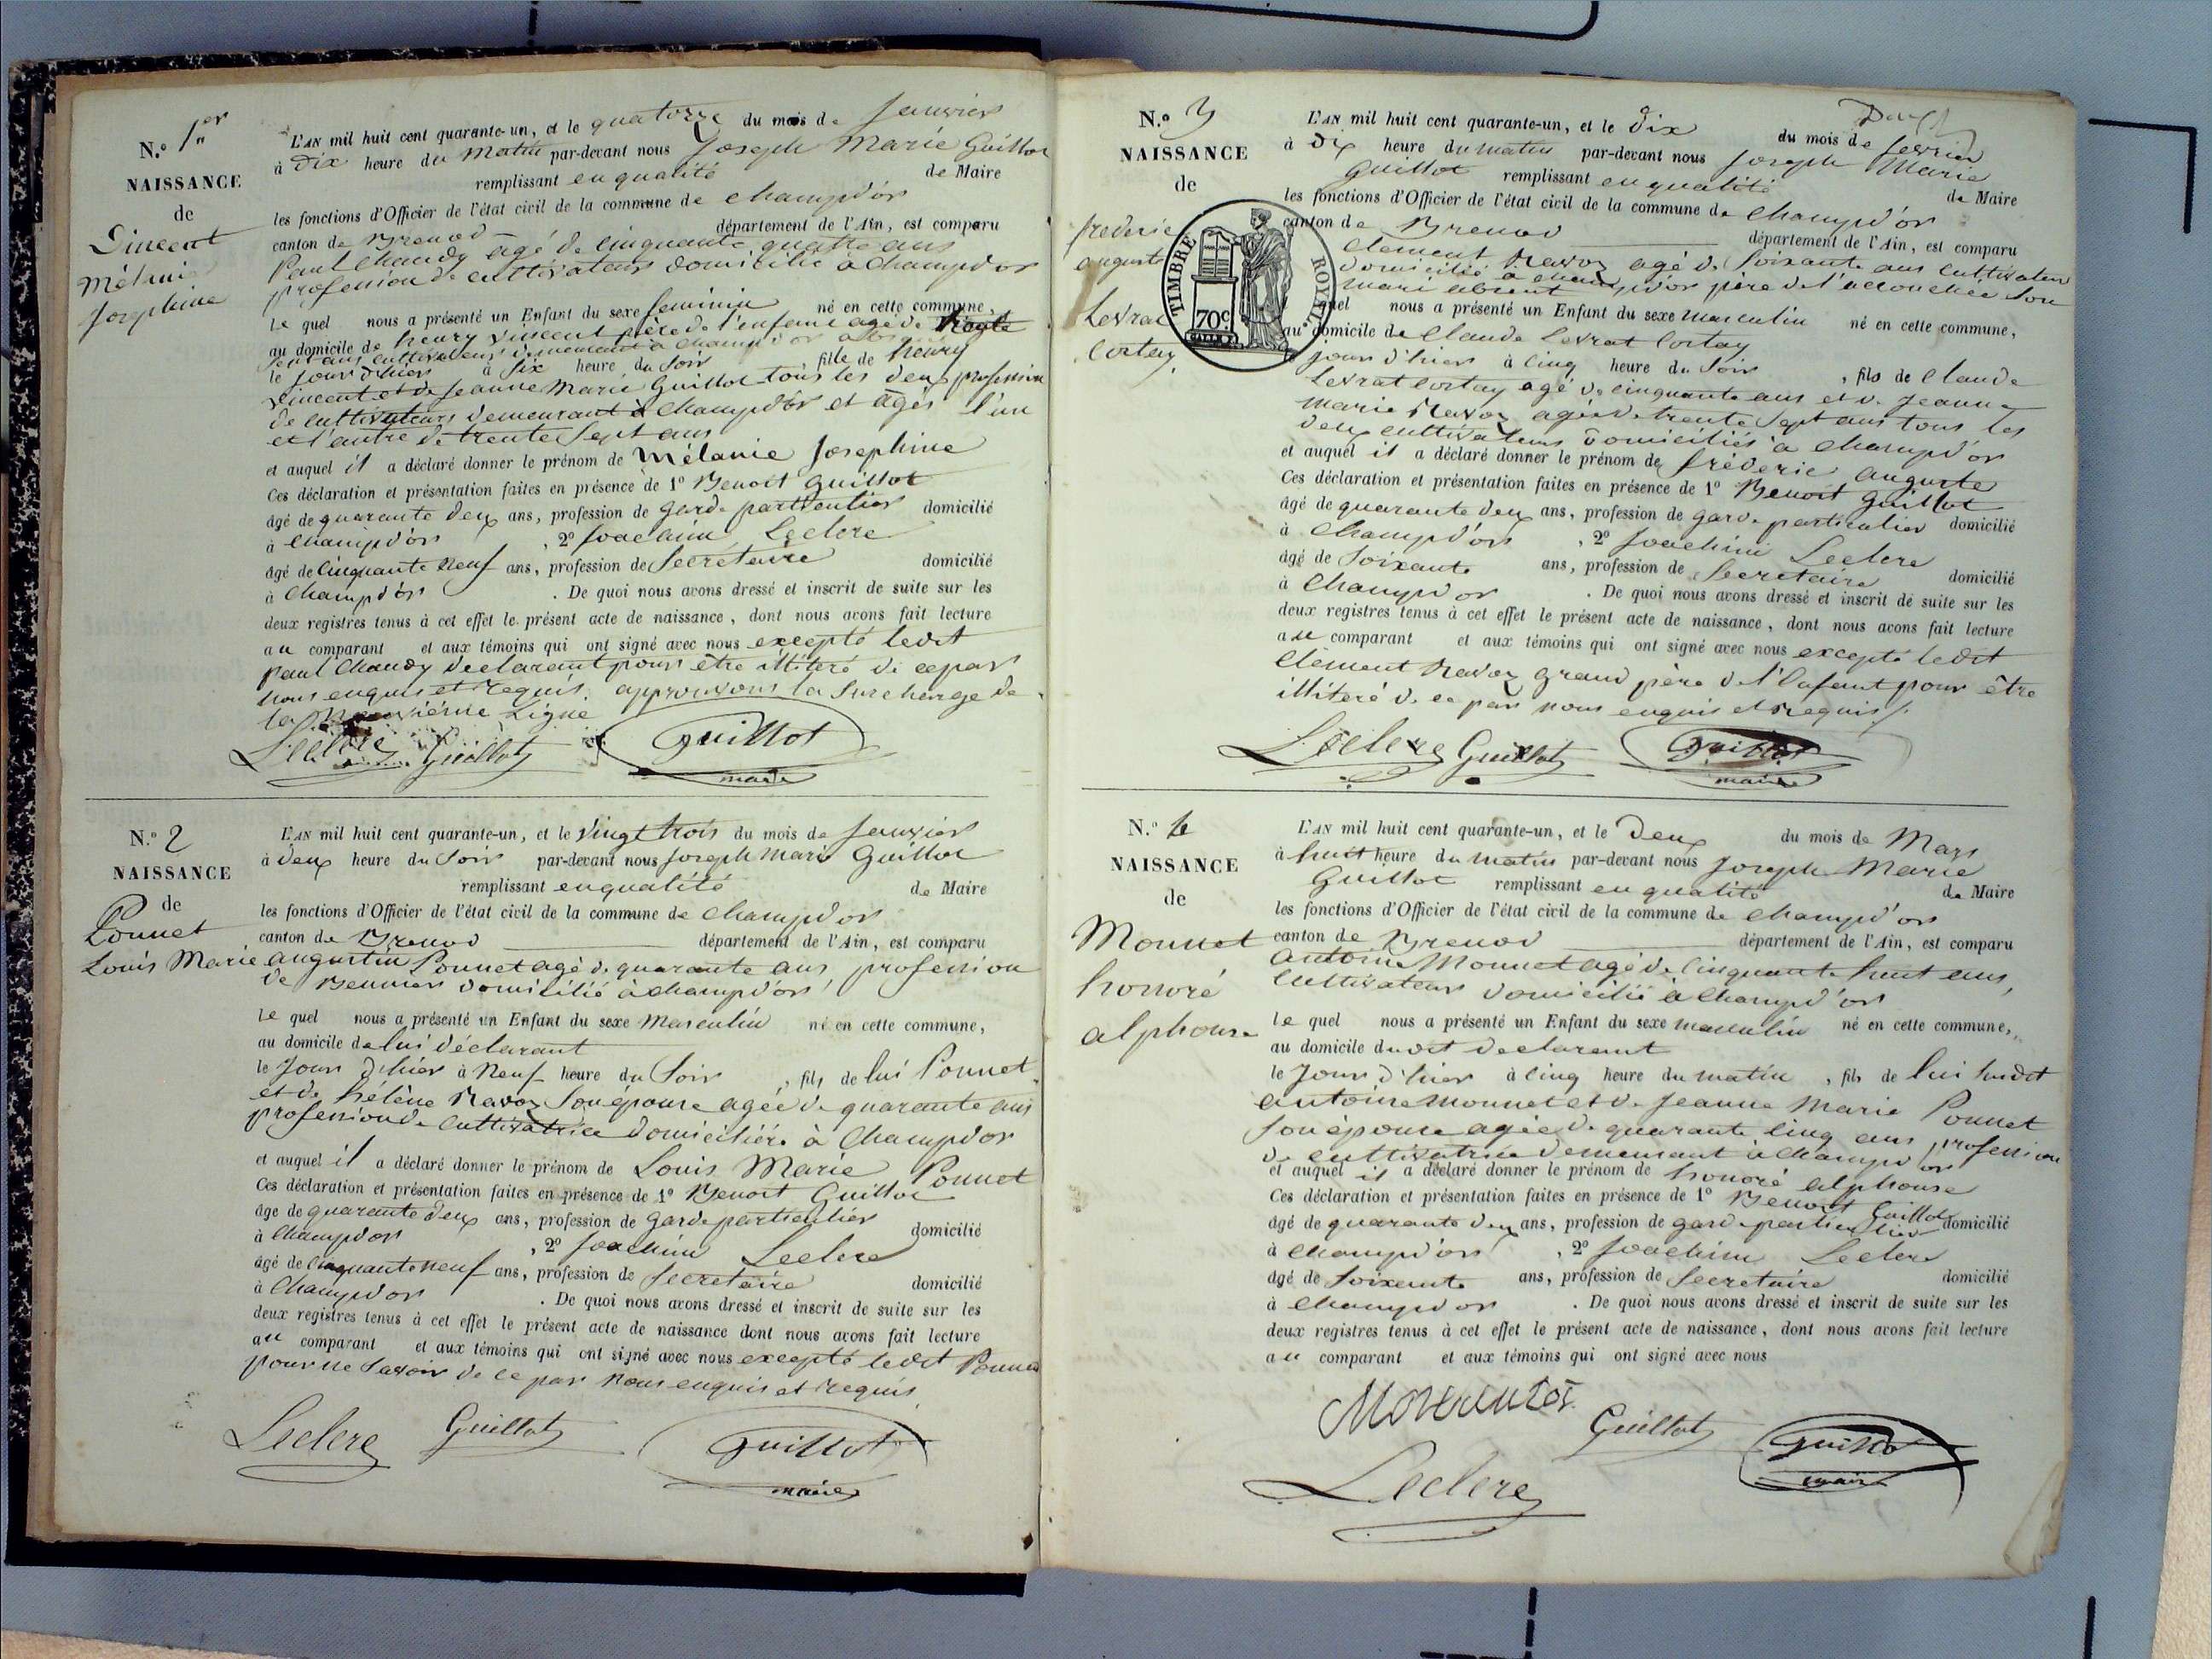 N.° 1.er
NAISSANCE
de
Vincent
Mélanie
Josephine
L'AN mil huit cent quarante-un, et le quatorze du mois de Janvier
à dix heure du Matin par-devant nous Joseph Marie Guillot
remplissant en qualité de Maire
les fonctions d'Officier de l'état civil de la commune de Champd'or
canton de Brenod département de l'Ain, est comparu
Paul Chaudy âgé de Cinquante quatre ans
profession de cultivateur domicilié à Champdor
Le quel nous a présenté un Enfant du sexe feminin né en cette commune,
au domicile de henry Vincent père de l'enfant agé de trente
Sept ans cultivateur demeurant à Champd'or
le jour d'hier à Six heure du Soir fille de henry
Vincent et de Jeanne Marie Guillot tous les deux profession
de cultivateurs demeurant à Champd'or et agés l'un
et l'autre de trente Sept ans
et auquel il a déclaré donner le prénom de Mélanie Josephine
Ces déclaration et présentation faites en présence de 1° Benoit Guillot
âgé de quarante deux ans, profession de garde particulier domicilié
à Champd'or , 2° Joachim Leclerc
âgé de Cinquante neuf ans, profession de Secretaire domicilié
à Champd'or . De quoi nous avons dressé et inscrit de suite sur les
deux registres tenus à cet effet le présent acte de naissance, dont nous avons fait lecture
au comparant et aux témoins qui ont signé avec nous excepté ledit
Paul Chaudy declarant pour être illiteré de ce par
nous enquis et requis. approuvons la Surcharge de
la neuvième Ligne
Leclerc Guillot Guillot
maire
N.° 2
NAISSANCE
de
Ponnet
Louis Marie
L'AN mil huit cent quarante-un, et le Vingt trois du mois de Janvier
à deux heure du Soir par-devant nous Joseph Marie Guillot
remplissant en qualité de Maire
les fonctions d'Officier de l'état civil de la commune de Champdor
canton de Brenod département de l'Ain, est comparu
augustin Ponnet agé de quarante ans, profession
de domicilié à Champd'or
Le quel nous a présenté un Enfant du sexe Masculin né en cette commune,
au domicile de lui déclarant
le Jour d'hier à Neuf heure du Soir , fils de lui Ponnet
et de hélène Ravoz Son épouse agée de quarante ans
profession de Cultivatrice domiciliée à Champdor
et auquel il a déclaré donner le prénom de Louis Marie Ponnet
Ces déclaration et présentation faites en présence de 1° Benoit Guillot
âge de quarante deux ans, profession de Garde particulier
à Champdor domicilié
, 2° Joachim Leclerc
âgé de Cinquante neuf ans, profession de Secretaire domicilié
à Champdor . De quoi nous avons dressé et inscrit de suite sur les
deux registres tenus à cet effet le présent acte de naissance dont nous avons fait lecture
au comparant et aux témoins qui ont signé avec nous excepté ledit Ponnet
pour ne Savoir de ce par nous enquis et requis
Leclerc Guillot Guillot
maire
N.° 3
NAISSANCE
de
frederic
auguste
Levrat
Cortay
TIMBRE ROYAL
70c
L'AN mil huit cent quarante-un, et le Dix du mois de fevrier
à Dix heure du matin par-devant nous Joseph Marie
Guillot remplissant en qualité de Maire
les fonctions d'Officier de l'état civil de la commune de Champd'or
canton de Brenod département de l'Ain, est comparu
Clement Ravoz agé de Soixante ans Cultivateur
domicilié à Champd'or père de l'accouchée Son
mari absent
Le quel nous a présenté un Enfant du sexe masculin né en cette commune,
au domicile de Claude Levrat Cortay
le jour d'hier à Cinq heure du Soir , fils de Claude
Levrat Cortay agé de Cinquante ans et de Jeanne
Marie Ravoz agée de trente Sept ans tous les
deux cultivateurs domiciliés à Champd'or
et auquel il a déclaré donner le prénom de fréderic auguste
Ces déclaration et présentation faites en présence de 1° Benoit Guillot
âgé de quarante deux ans, profession de garde particulier domicilié
à Champd'or , 2° Joachim Leclerc
âgé de Soixante ans, profession de Secretaire domicilié
à Champdor . De quoi nous avons dressé et inscrit de suite sur les
deux registres tenus à cet effet le présent acte de naissance, dont nous avons fait lecture
au comparant et aux témoins qui ont signé avec nous excepté ledit
Clement Ravoz grand père de l'Enfant pour être
illiteré de ce par nous enquis et requis
Leclerc Guillot Guillot
maire
N.° 4
NAISSANCE
de
Monnet
honoré
alphonse
L'AN mil huit cent quarante-un, et le Deux du mois de Mars
à huit heure du matin par-devant nous Joseph Marie
Guillot remplissant en qualité de Maire
les fonctions d'Officier de l'état civil de la commune de Champd'or
canton de Brenod département de l'Ain, est comparu
Antoine Monnet agé de Cinquante huit ans,
Cultivateur domicilié à Champd'or
Le quel nous a présenté un Enfant du sexe masculin né en cette commune,
au domicile dudit declarant
le Jour d'hier à Cinq heure du matin , fils de lui susdit
antoine Monnet et de Jeanne Marie Ponnet
Son épouse agée de quarante Cinq ans profession
de cultivatrice demeurant à Champdor
et auquel il a déclaré donner le prénom de honoré alphonse
Ces déclaration et présentation faites en présence de 1° Benoit Guillot
âgé de quarante deux ans, profession de garde particulier domicilié
à Champd'or , 2° Joachim Leclerc
âgé de Soixante ans, profession de Secretaire domicilié
à Champdor . De quoi nous avons dressé et inscrit de suite sur les
deux registres tenus à cet effet le présent acte de naissance, dont nous avons fait lecture
au comparant et aux témoins qui ont signé avec nous
Guillot Guillot
maire
Leclerc